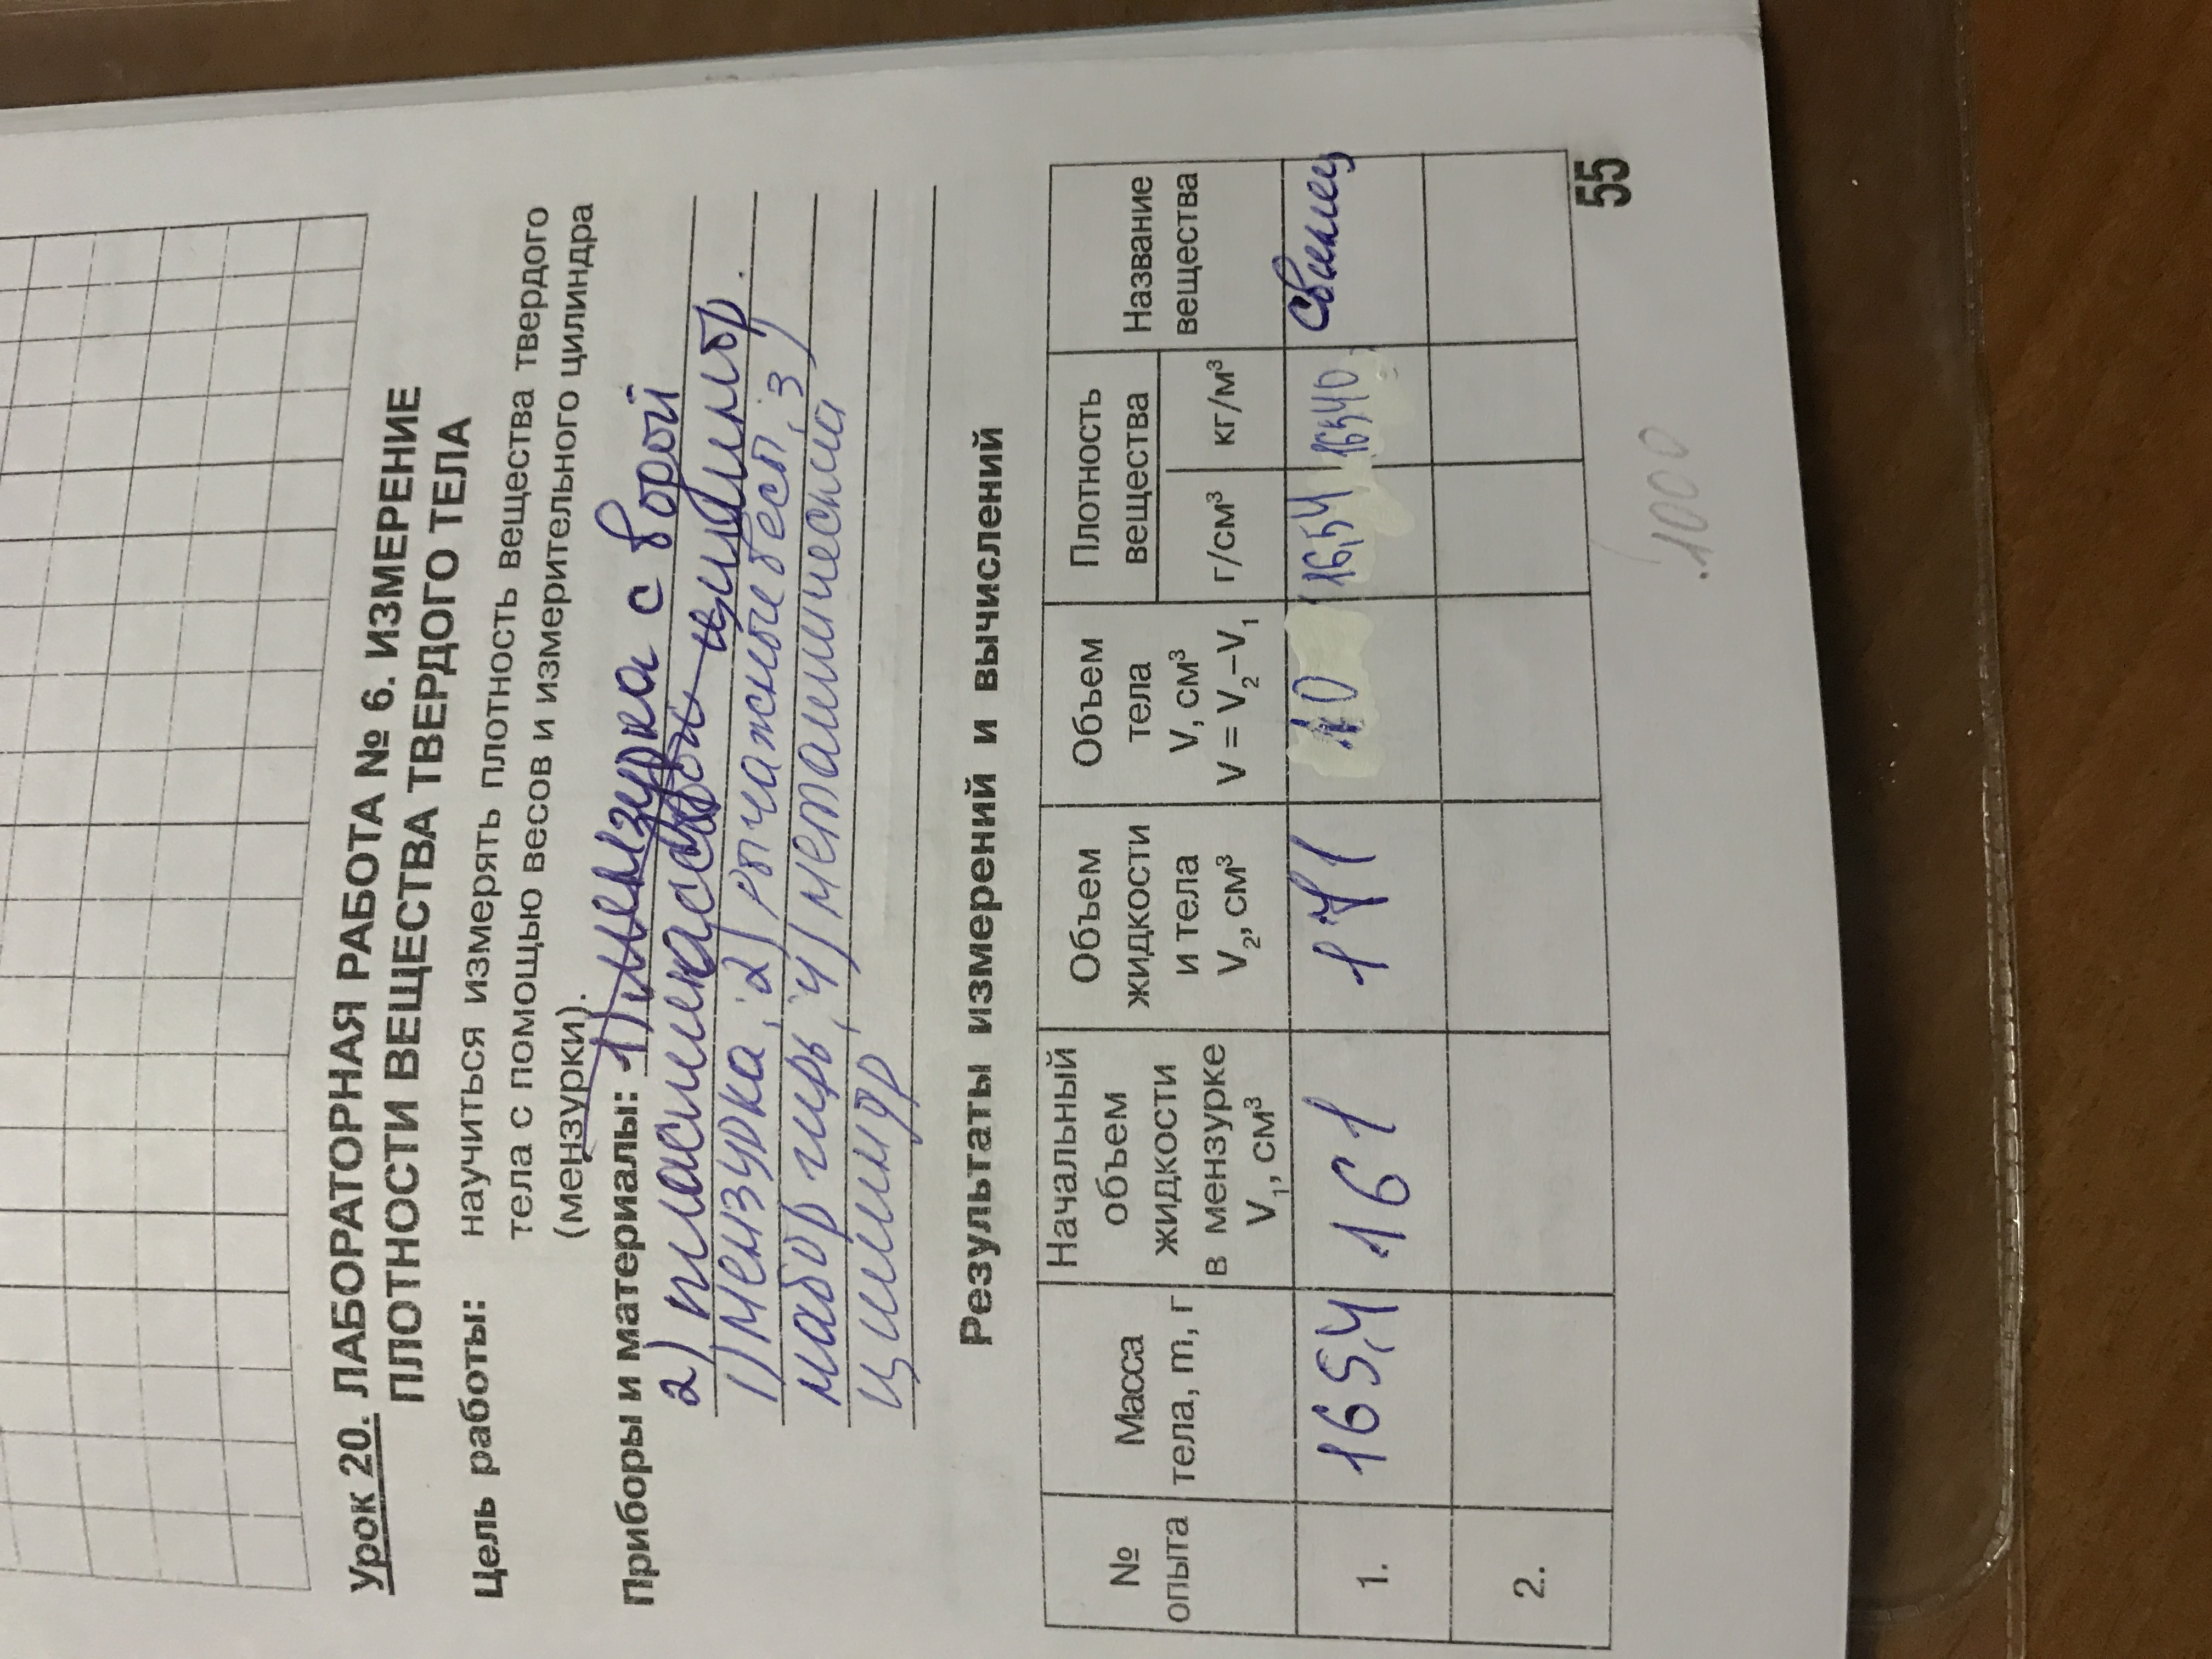 Урок 20. ЛАБОРАТОРНАЯ РАБОТА № 6. ИЗМЕРЕНИЕ
ПЛОТНОСТИ ВЕЩЕСТВА ТВЕРДОГО ТЕЛА
Цель работы: научиться измерять плотность вещества твердого
тела с помощью весов и измерительного цилиндра
(мензурки).
Приборы и материалы: 1) мензурка с водой
2) пластмассовый цилиндр.
1) мензурка, 2) рычажные весы, 3)
набор гирь, 4) металлический
цилиндр
Результаты измерений и вычислений
№ опыта
Масса тела, m, г
Начальный объем жидкости в мензурке V₁, см³
Объем жидкости и тела V₂, см³
Объем тела V, см³ V = V₂–V₁
Плотность вещества
г/см³
кг/м³
Название вещества
1. 165,4 161 171 10 16,54 16540 свинец
2.
55
.1000